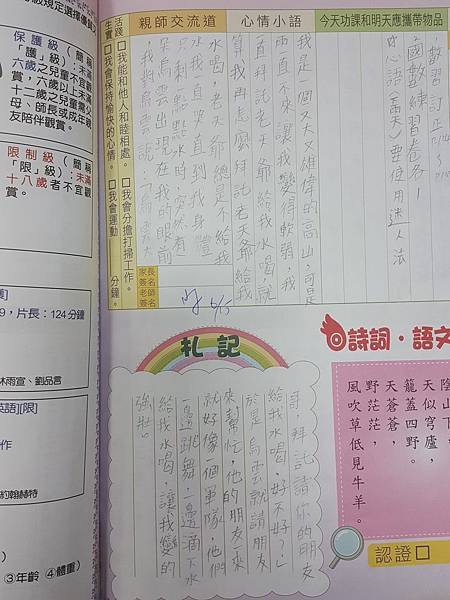 級規定選擇優質
保護級（簡稱
「護」級）：未滿
六歲之兒童不宜觀
賞，六歲以上未滿
十二歲之兒童需父
母、師長或成年親
友陪伴觀賞。
限制級（簡稱
「限」級）：未滿
十八歲者不宜觀
賞。
9，片長：124分鐘
林雨宣、劉品言
英語][限]
作
約翰赫特
③年齡 ④體重）
今天功課和明天應攜帶物品
心情小語
親師交流道
生活實踐
2.國數練習卷各1
我是一個又大又雄偉的高山，可是
雨直不來，讓我變得軟弱，我
一直拜託老天爺給我水喝，就
算我再怎麼拜託老天爺給我
水喝，老天爺總是不給我
水，我直到我身體
只剩一點點水時，突然有
朵烏雲出現在我的眼前
，我對烏雲說：「烏雲
□我能和他人和睦相處。
□我會分擔打掃工作。
□我會保持愉快的心情。
□我會運動 分鐘。
家長簽名
老師簽名
6/15
札記
哥，拜託請你的朋友
給我水喝，好不好？」
於是烏雲就請朋友
來幫忙，他的朋友一來
就好像一個軍隊，他們
一邊跳舞一邊灑下水
給我水喝，讓我變的
強壯。
詩詞·語文
陰山下，
天似穹廬，
籠蓋四野。
天蒼蒼，
野茫茫，
風吹草低見牛羊。
認證□